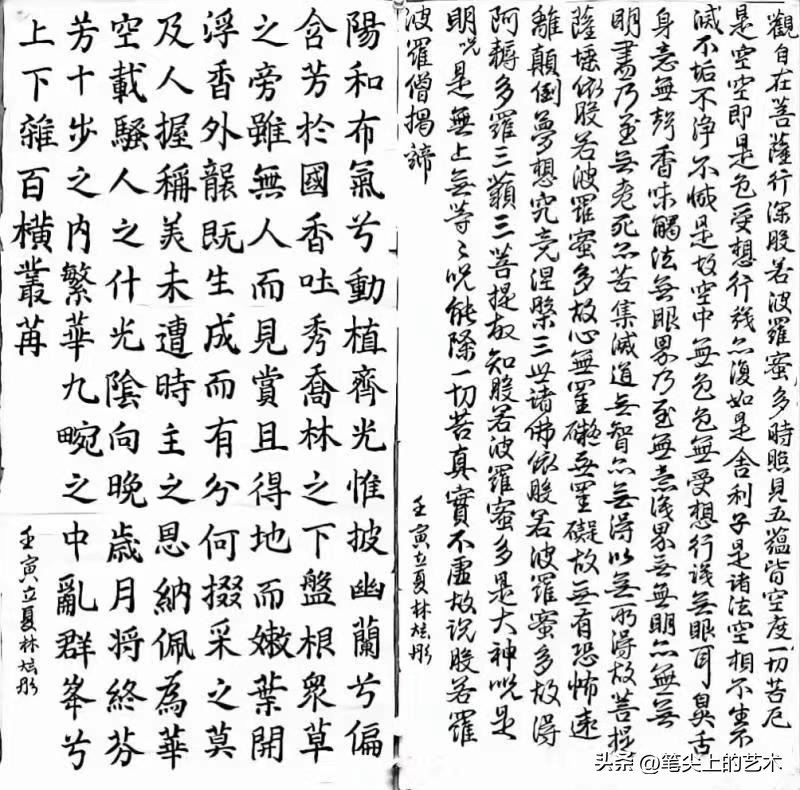 觀自在菩薩行深般若波羅蜜多時照見五蘊皆空度一切苦厄
是空空即是色受想行識亦復如是舍利子是諸法空相不生不
滅不垢不淨不減是故空中無色色無受想行識無眼耳鼻舌
身意無聲香味觸法無眼界乃至無意識界無無明亦無無
明盡乃至無老死亦苦集滅道無智亦無得以無所得故菩提
薩埵依般若波羅蜜多故心無罣礙無罣礙故無有恐怖遠
離顛倒夢想究竟涅槃三世諸佛依般若波羅蜜多故得
阿耨多羅三藐三菩提故知般若波羅蜜多是大神咒是
明咒是無上無等々咒能除一切苦真實不虛故說般若羅
波羅僧揭諦
壬寅立夏林炫彤
陽和布氣兮動植齊光惟披幽蘭兮偏
含芳於國香吐秀喬林之下盤根眾草
之旁雖無人而見賞且得地而嫩葉開
浮香外襲既生成而有分何掇采之莫
及人握稱美未遭時主之恩納佩為華
空載騷人之什光陰向晚歲月將終芬
芳十步之內繁華九畹之中亂群峯兮
上下雜百橫叢苒
壬寅立夏林炫彤
头条 @笔尖上的艺术